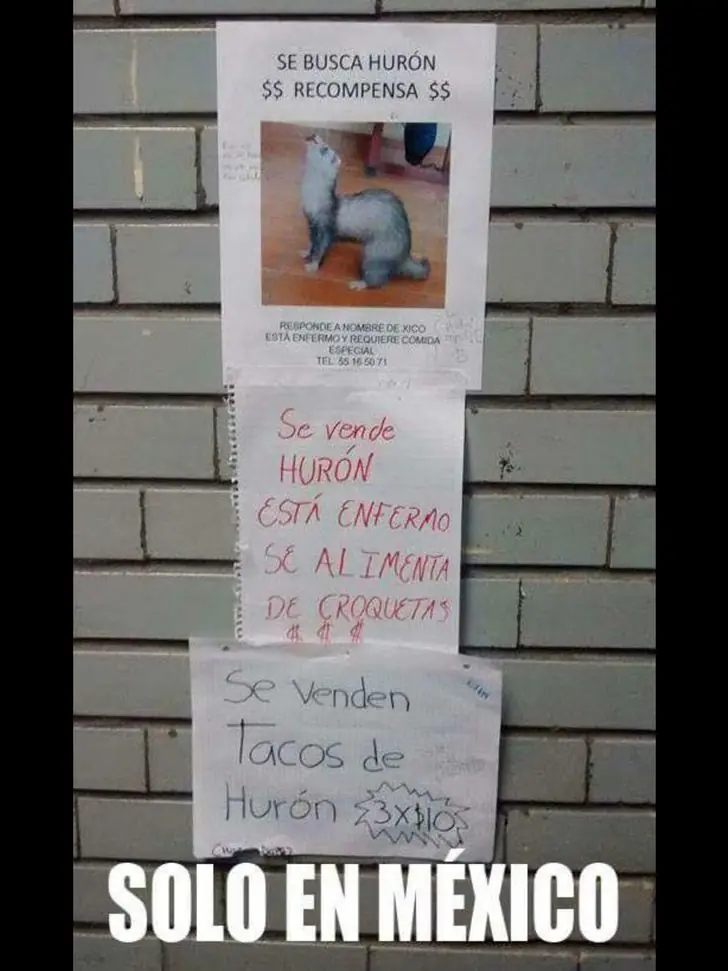 SE BUSCA HURÓN
$$ RECOMPENSA $$
RESPONDE A NOMBRE DE XICO
ESTÁ ENFERMO Y REQUIERE COMIDA
ESPECIAL
TEL. 55 16 50 71
Se vende
HURÓN
ESTÁ ENFERMO
SE ALIMENTA
DE CROQUETAS
$ $ $
Se Venden
Tacos de
Hurón 3X$10
SOLO EN MÉXICO